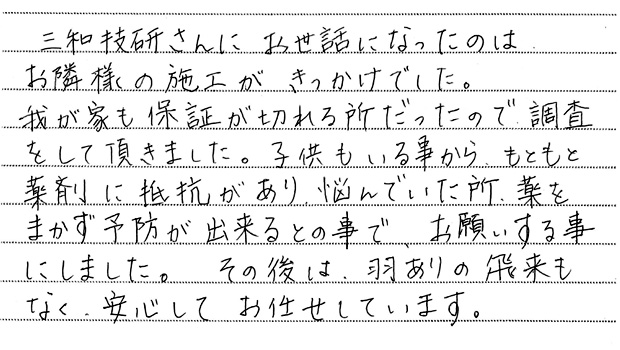 三和技研さんに お世話になったのは
お隣様の施工が きっかけでした。
我が家も 保証が切れる所だったので 調査
をして頂きました。子供もいる事から、もともと
薬剤に抵抗があり、悩んでいた所、薬を
まかず予防が出来るとの事で、お願いする事
にしました。 その後は、羽ありの飛来も
なく、安心して お任せしています。